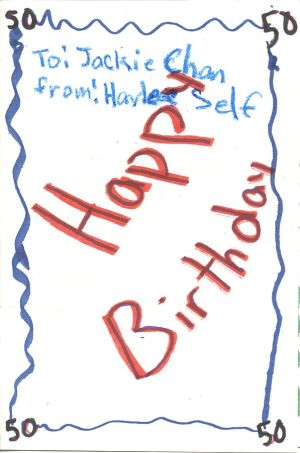 50 50
To: Jackie Chan
from: Harlee Self
Happy
Birthday
50 50